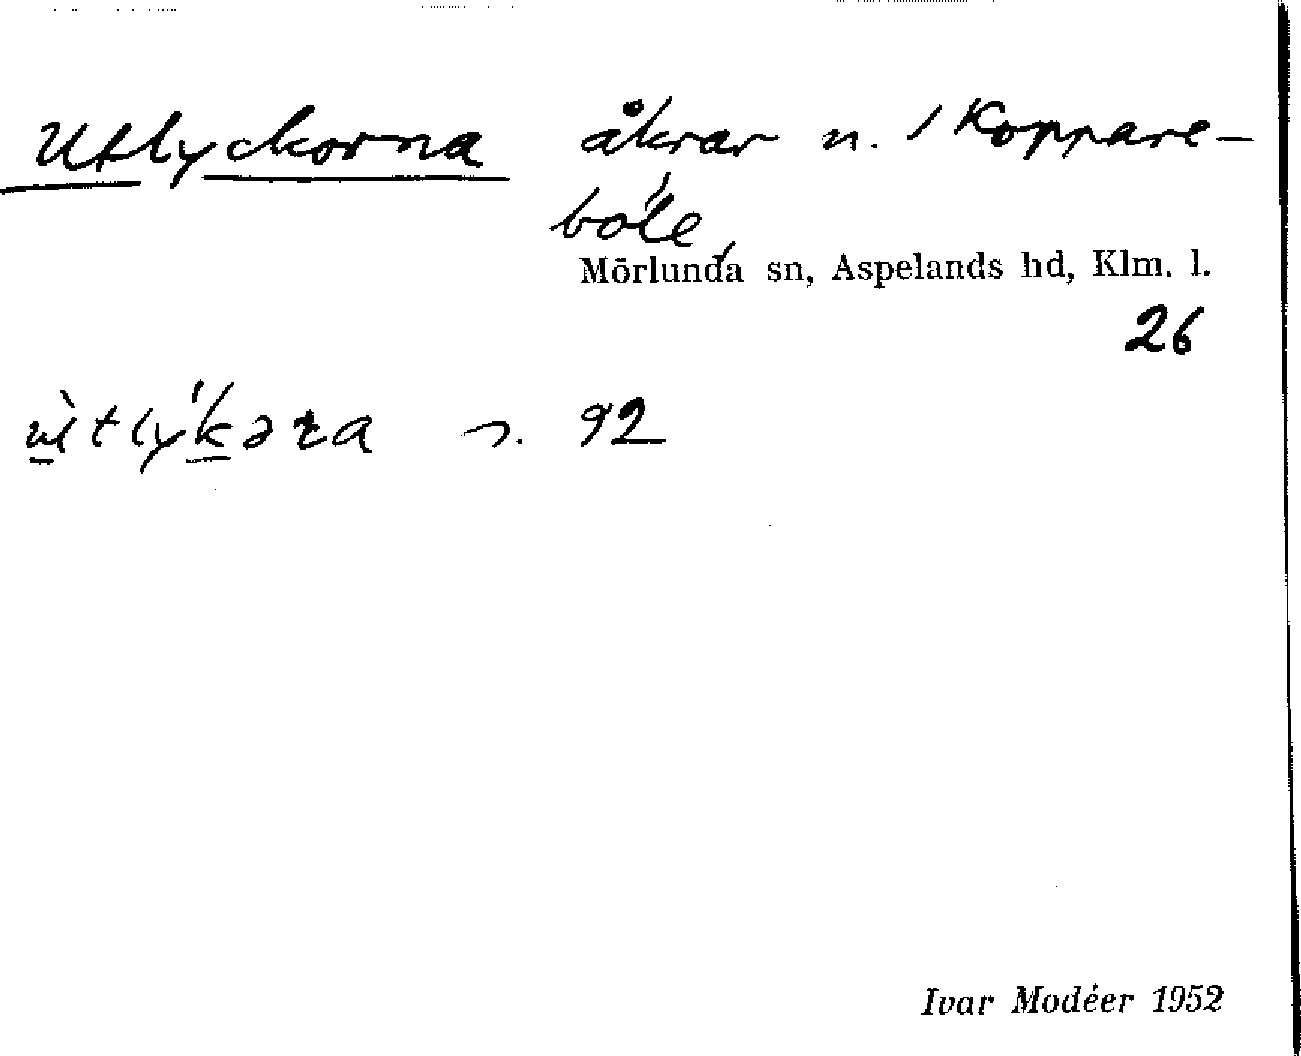 Utlyckorna åkrar n. / Koppare-
bo le,
Mörlunda sn, Aspelands hd, Klm. l.
26
ùtlýkəra n. 92
Ivar Modéer 1952